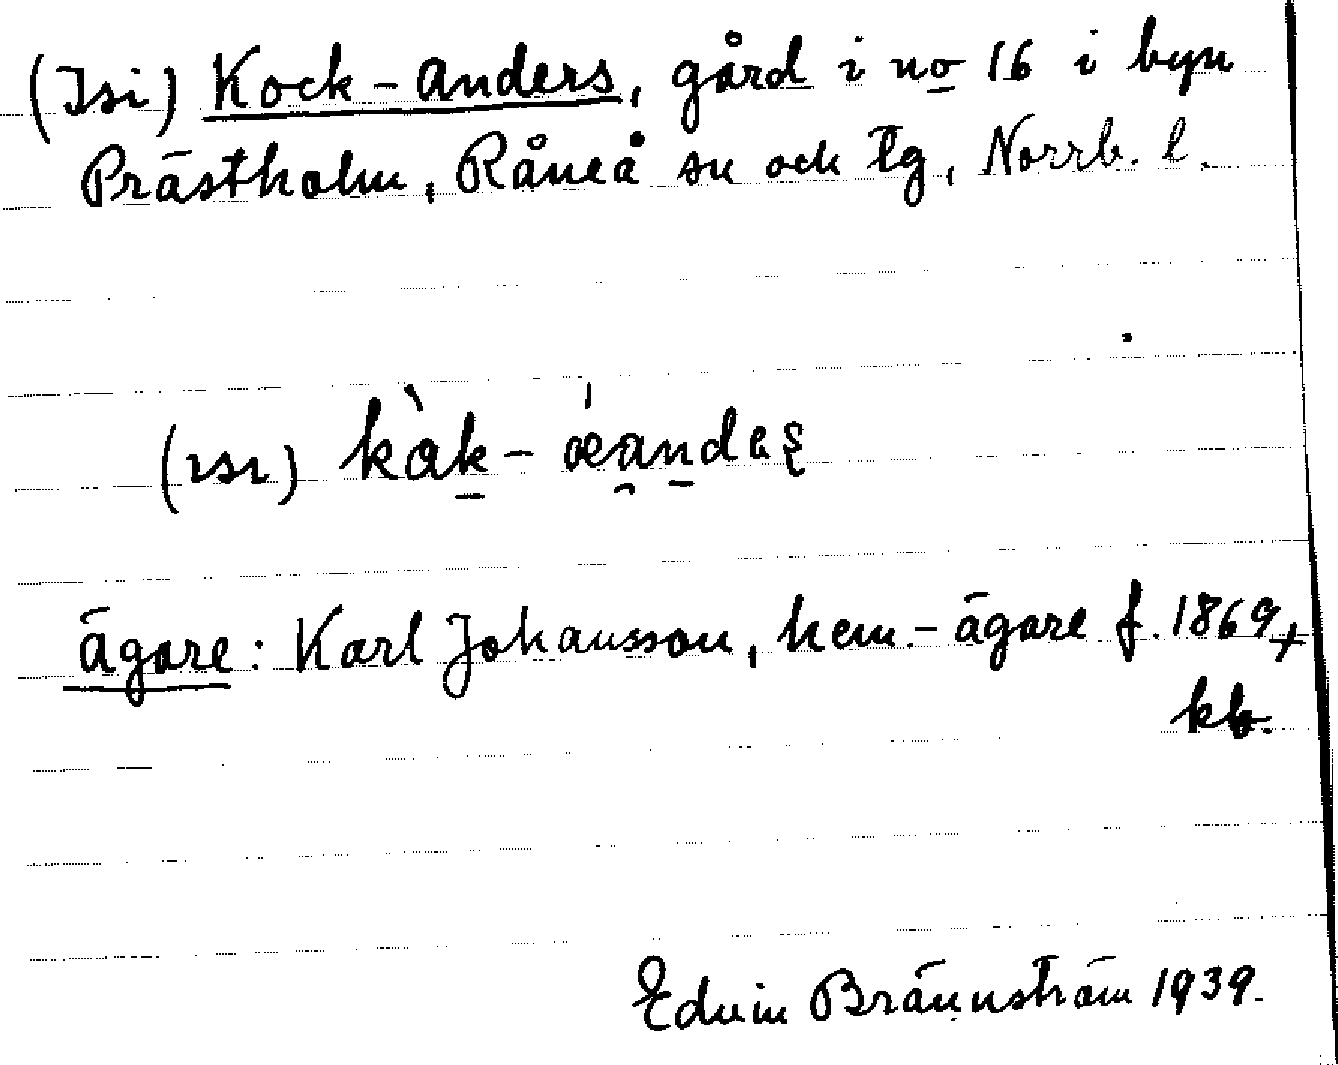 (Isi) Kock-Anders, gård i no 16 i byn
Prästholm, Råneå sn och tg, Norrb. l.
(ısı) kàk-æ̀andeṣ
ägare: Karl Johansson, hem.-ägare f. 1869,
kb.
Edvin Brännström 1939.